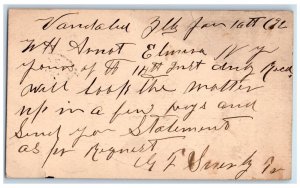 Vandalia Ills Jan 16th 
W H Arnot Elmira N. Y
yours of 14th Inst duly Recd
will look the matter
up in a few days and
send you Statement
as pr Request